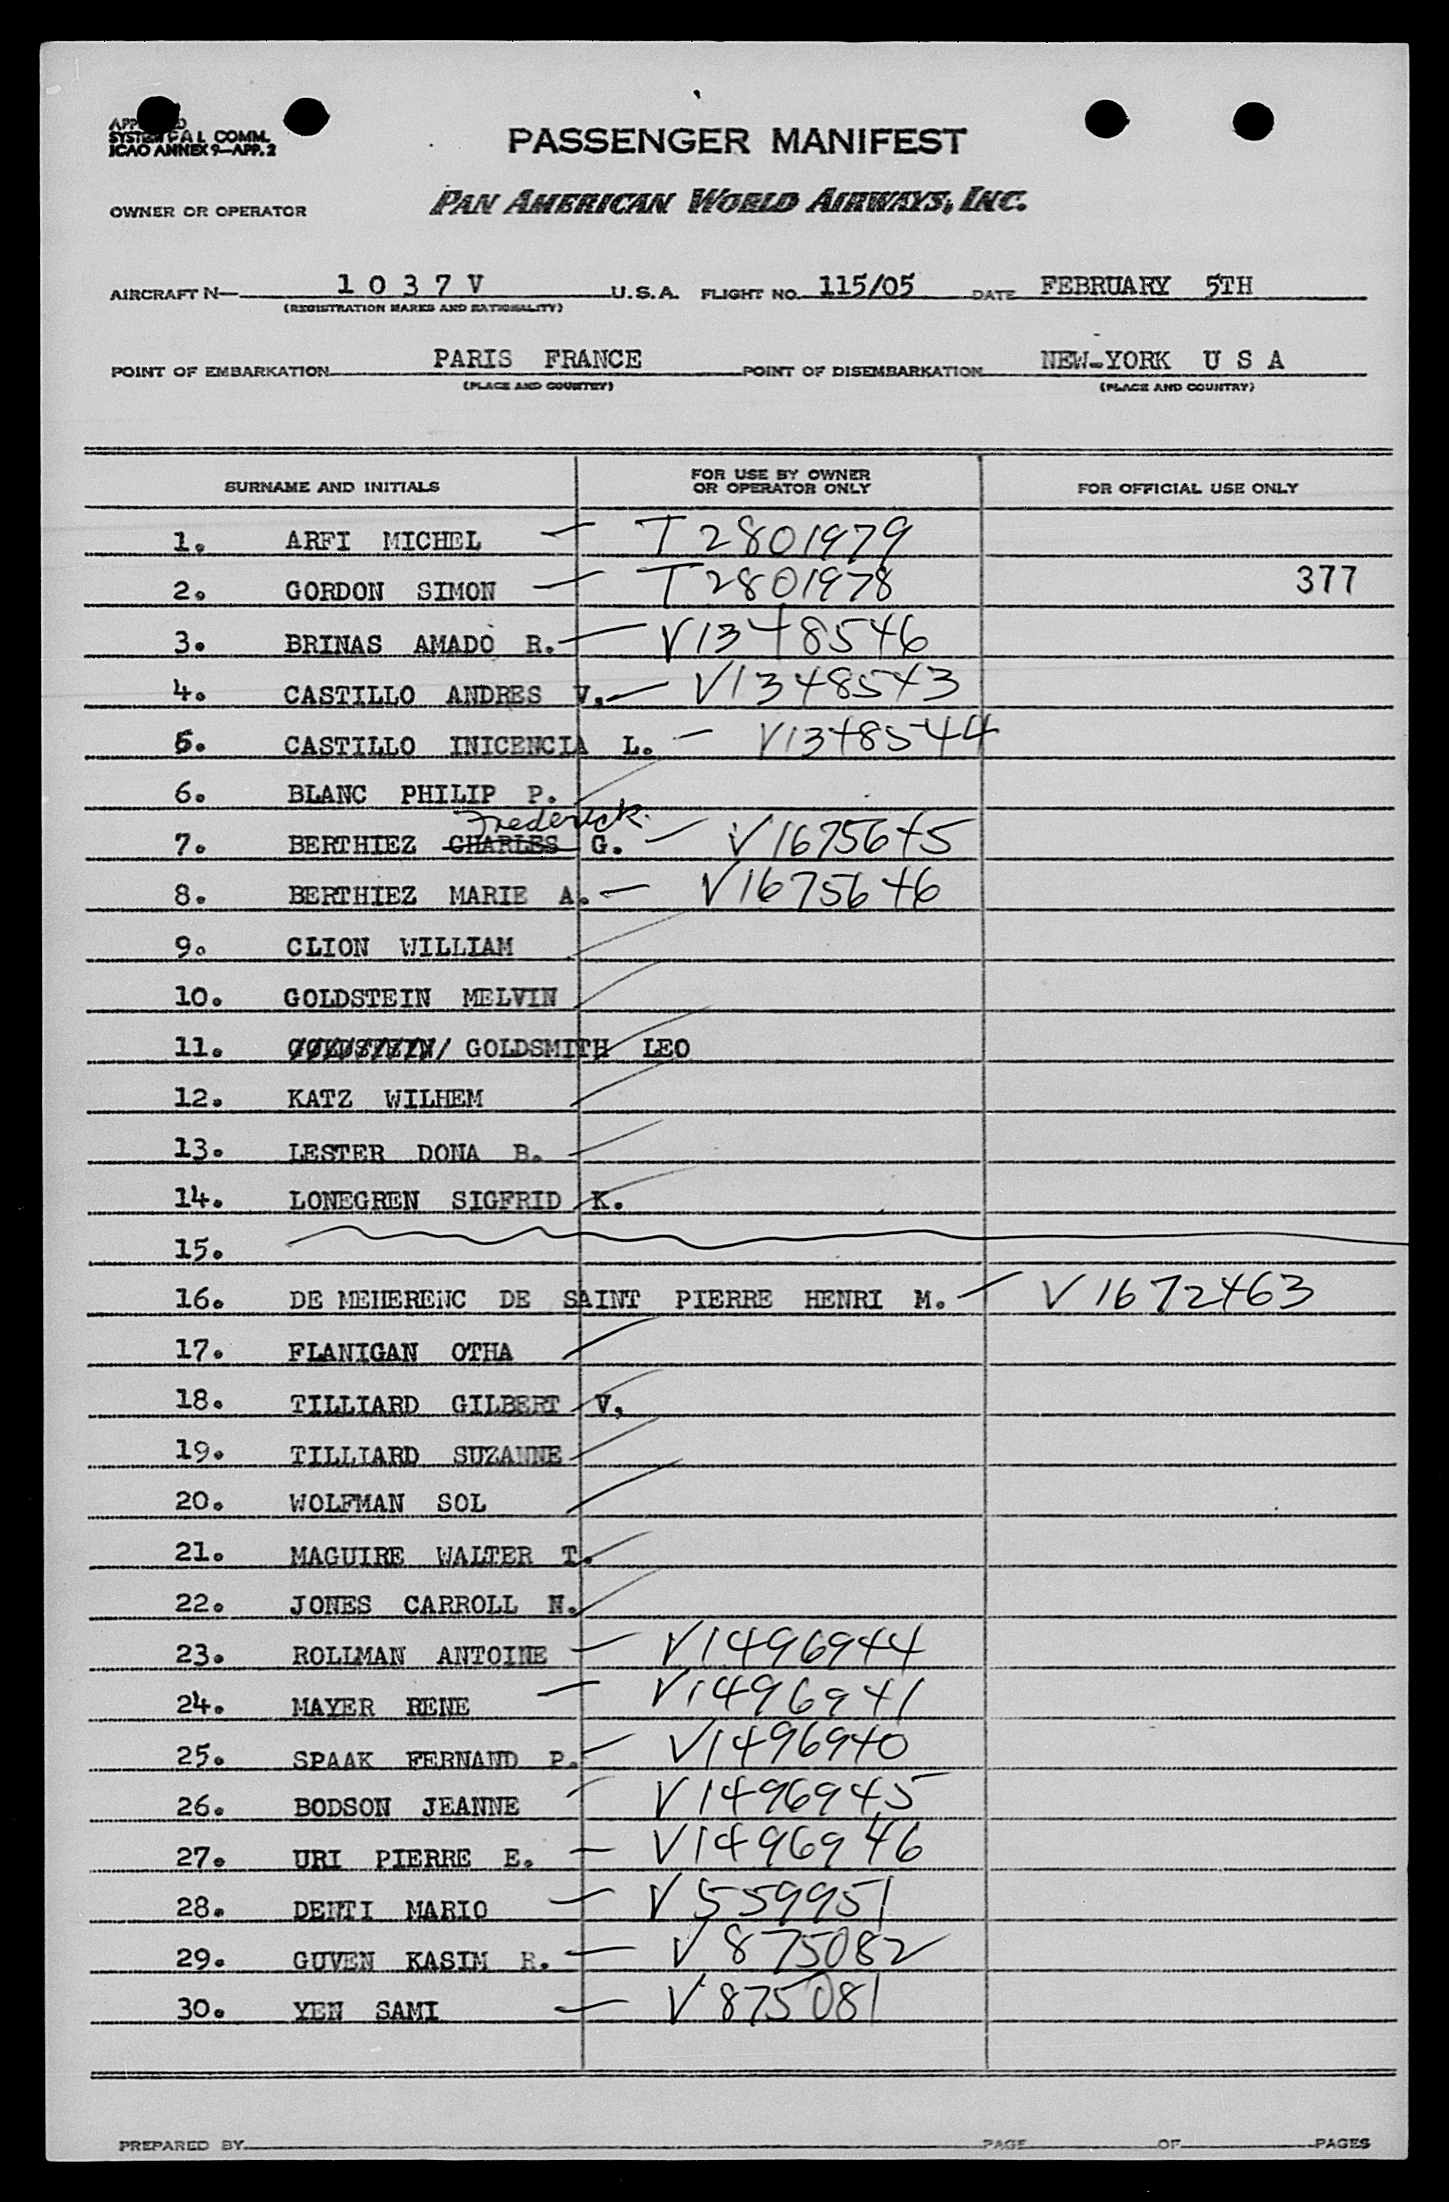 APP D
SYSTEM CAL COMM.
ICAO ANNEX 9—APP. 2
PASSENGER MANIFEST
OWNER OR OPERATOR PAN AMERICAN WORLD AIRWAYS, INC.
AIRCRAFT N— 1 0 3 7 V U.S.A. FLIGHT NO. 115/05 DATE FEBRUARY 5TH
(REGISTRATION MARKS AND NATIONALITY)
POINT OF EMBARKATION PARIS FRANCE POINT OF DISEMBARKATION NEW-YORK U S A
(PLACE AND COUNTRY) (PLACE AND COUNTRY)
SURNAME AND INITIALS FOR USE BY OWNER OR OPERATOR ONLY FOR OFFICIAL USE ONLY
1. ARFI MICHEL T2801979
2. GORDON SIMON T2801978 377
3. BRINAS AMADO R. V1348546
4. CASTILLO ANDRES V. V1348543
5. CASTILLO INICENCIA L. V1348544
6. BLANC PHILIP P.
Frederick
7. BERTHIEZ CHARLES G. V1675645
8. BERTHIEZ MARIE A. V1675646
9. CLION WILLIAM
10. GOLDSTEIN MELVIN
11. GOLDSTEIN/ GOLDSMITH LEO
12. KATZ WILHEM
13. LESTER DONA B.
14. LONEGREN SIGFRID K.
15.
16. DE MEHERENC DE SAINT PIERRE HENRI M. V1672463
17. FLANIGAN OTHA
18. TILLIARD GILBERT V,
19. TILLIARD SUZANNE
20. WOLFMAN SOL
21. MAGUIRE WALTER T.
22. JONES CARROLL N.
23. ROLLMAN ANTOINE V1496944
24. MAYER RENE V1496941
25. SPAAK FERNAND P. V1496940
26. BODSON JEANNE V1496945
27. URI PIERRE E. V1496946
28. DENTI MARIO V559951
29. GUVEN KASIM R. V875082
30. YEN SAMI V875081
PREPARED BY PAGE OF PAGES